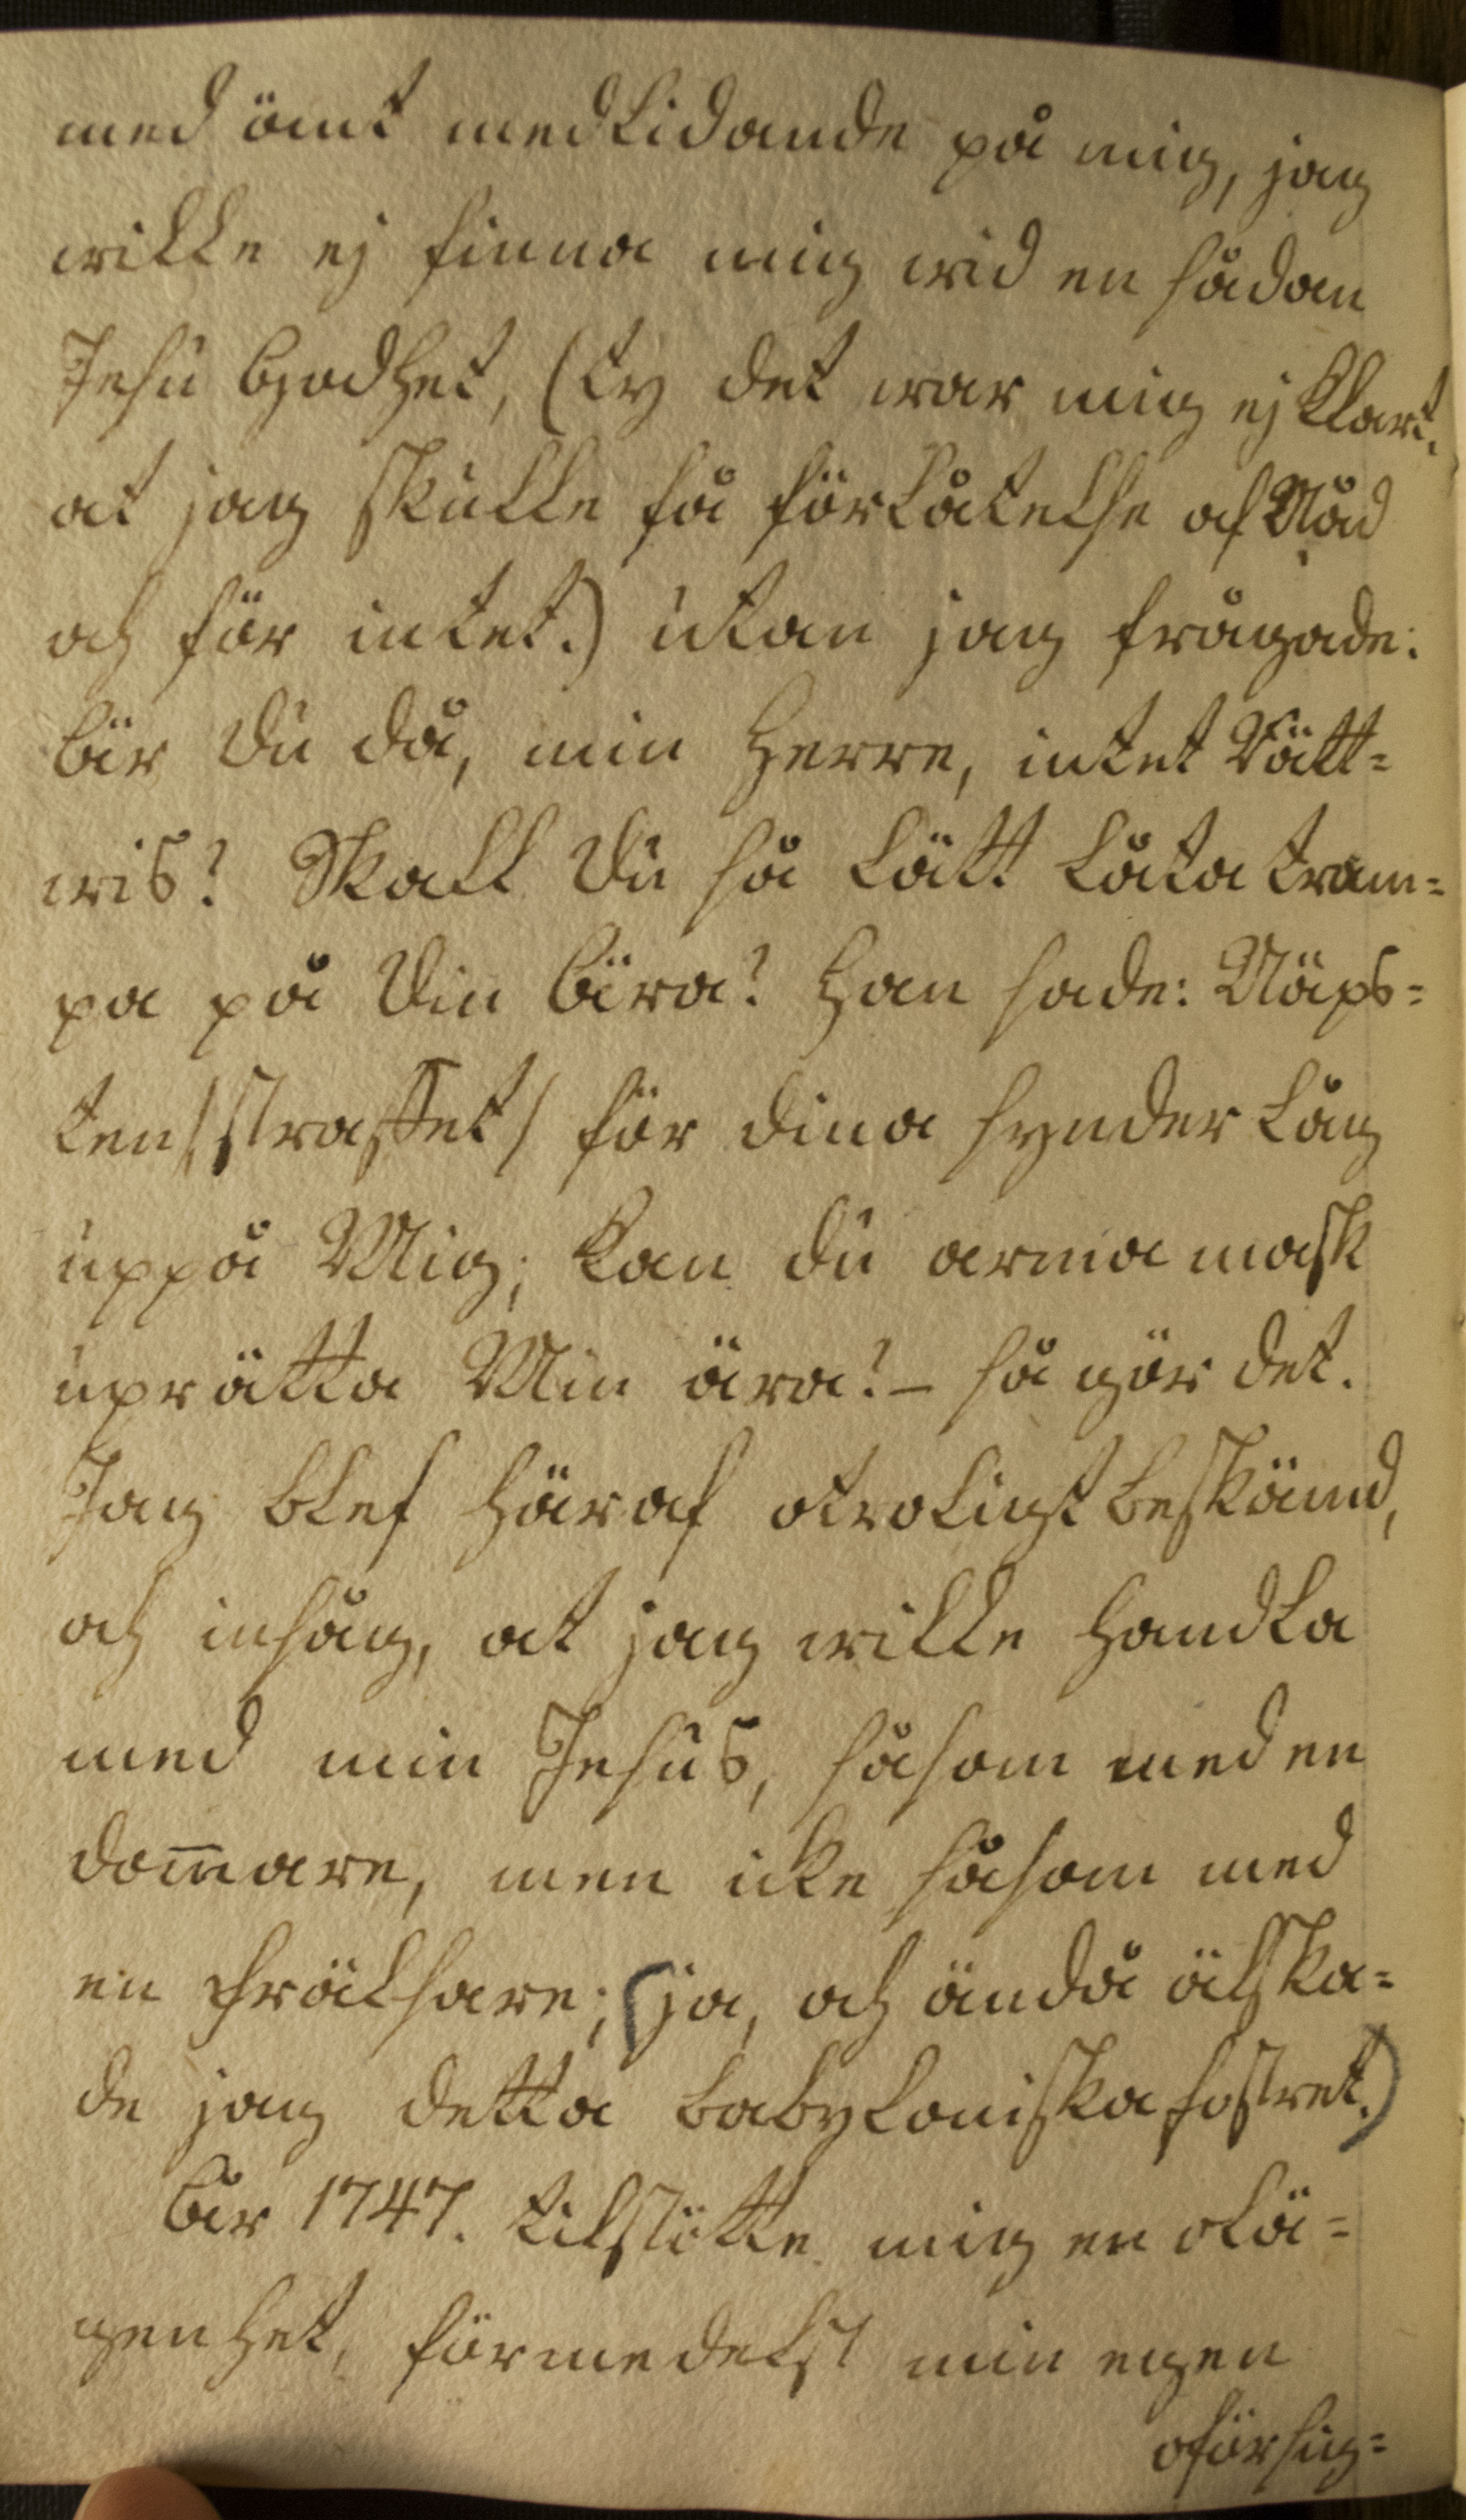 med ömt medlidande på mig, jag
wille ej finna mig wid en sådan
Jesu Godhet, (ty det war mig ej klart,
at jag skulle få förlåtelse af Nåd
och för intet.) utan jag frågade:
Är Du då, min Herre, intet Rätt-
wis? Skall Du så lätt låta tram-
pa på Din Ära? Han sade: Näps-
ten /:straffet/ för dina synder låg
uppå Mig; kan du arma mask
uprätta Min ära? - så gör det.
Jag blef häraf otroligt beskämd,
och insåg, at jag wille handla
med min Jesus, såsom med en
dom̅are, men icke såsom med
en Frälsare; (ja, och ändå älska-
de jag detta babyloniska fostret.)
År 1747. tilstötte mig en olä-
genhet, förmedelst min egen
oförsig-